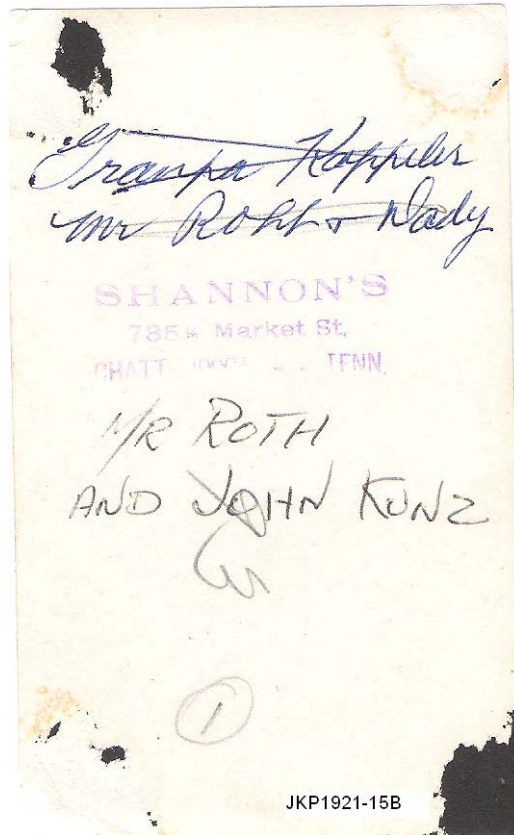 Granpa Kappeler
Mr Roht + Dady
SHANNON'S
785½ Market St.
CHATT TENN.
MR ROTH
AND JOHN KUNZ
1
JKP1921-15B